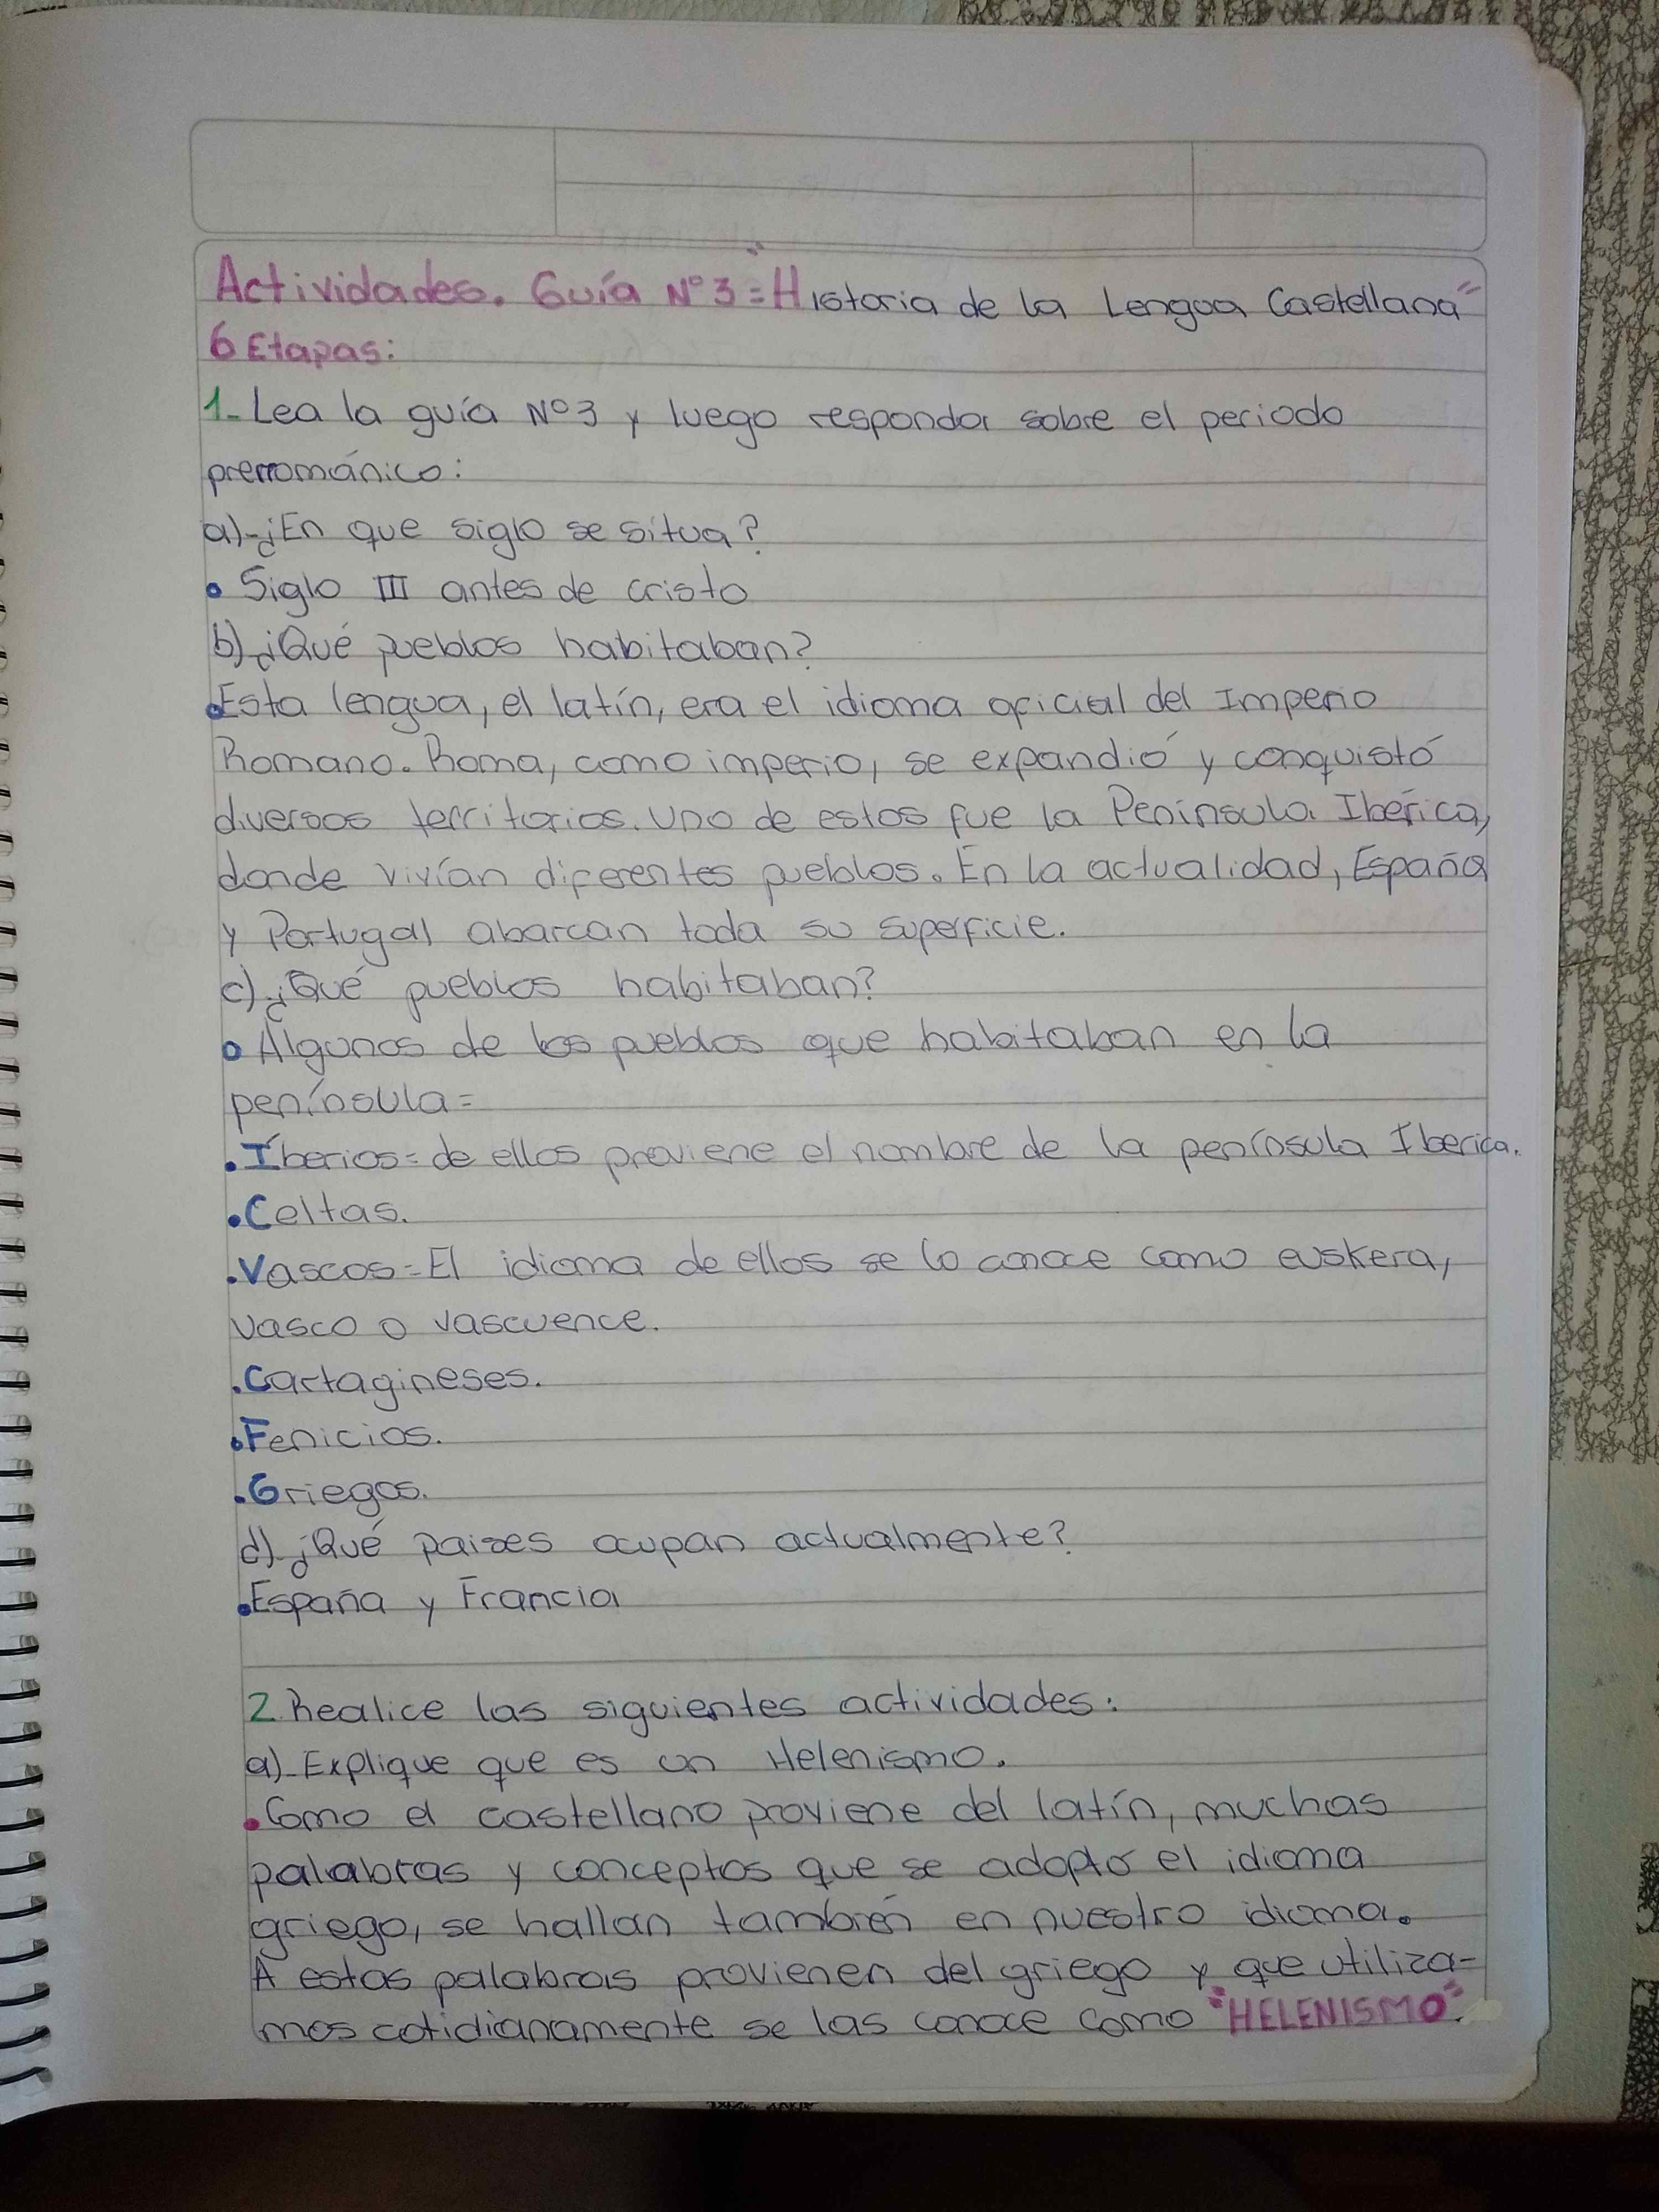 Actividades. Guía N°3="Historia de la Lengua Castellana"
6 Etapas:
1- Lea la guía N°3 y luego responda sobre el periodo
prerrománico:
a)-¿En que siglo se situa?
• Siglo III antes de cristo
b)-¿Qué pueblos habitaban?
• Esta lengua, el latín, era el idioma oficial del Imperio
Romano. Roma, como imperio, se expandió y conquistó
diversos territorios. Uno de estos fue la Península Ibérica,
donde vivían diferentes pueblos. En la actualidad, España
y Portugal abarcan toda su superficie.
c)-¿Qué pueblos habitaban?
• Algunos de los pueblos que habitaban en la
península=
• Íberios= de ellos proviene el nombre de la península Iberica.
• Celtas.
• Vascos= El idioma de ellos se lo conoce como euskera,
vasco o vascuence.
• Cartagineses.
• Fenicios.
• Griegos.
d)-¿Qué paises ocupan actualmente?
• España y Francia
2. Realice las siguientes actividades:
a)-Explique que es un Helenismo.
• Como el castellano proviene del latín, muchas
palabras y conceptos que se adoptó el idioma
griego, se hallan también en nuestro idioma.
A estas palabras provienen del griego y que utiliza-
mos cotidianamente se las conoce como "HELENISMO".